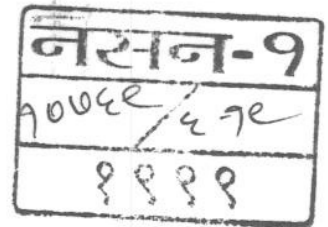 नसन-१
१०७६९/६-१९
१९९९